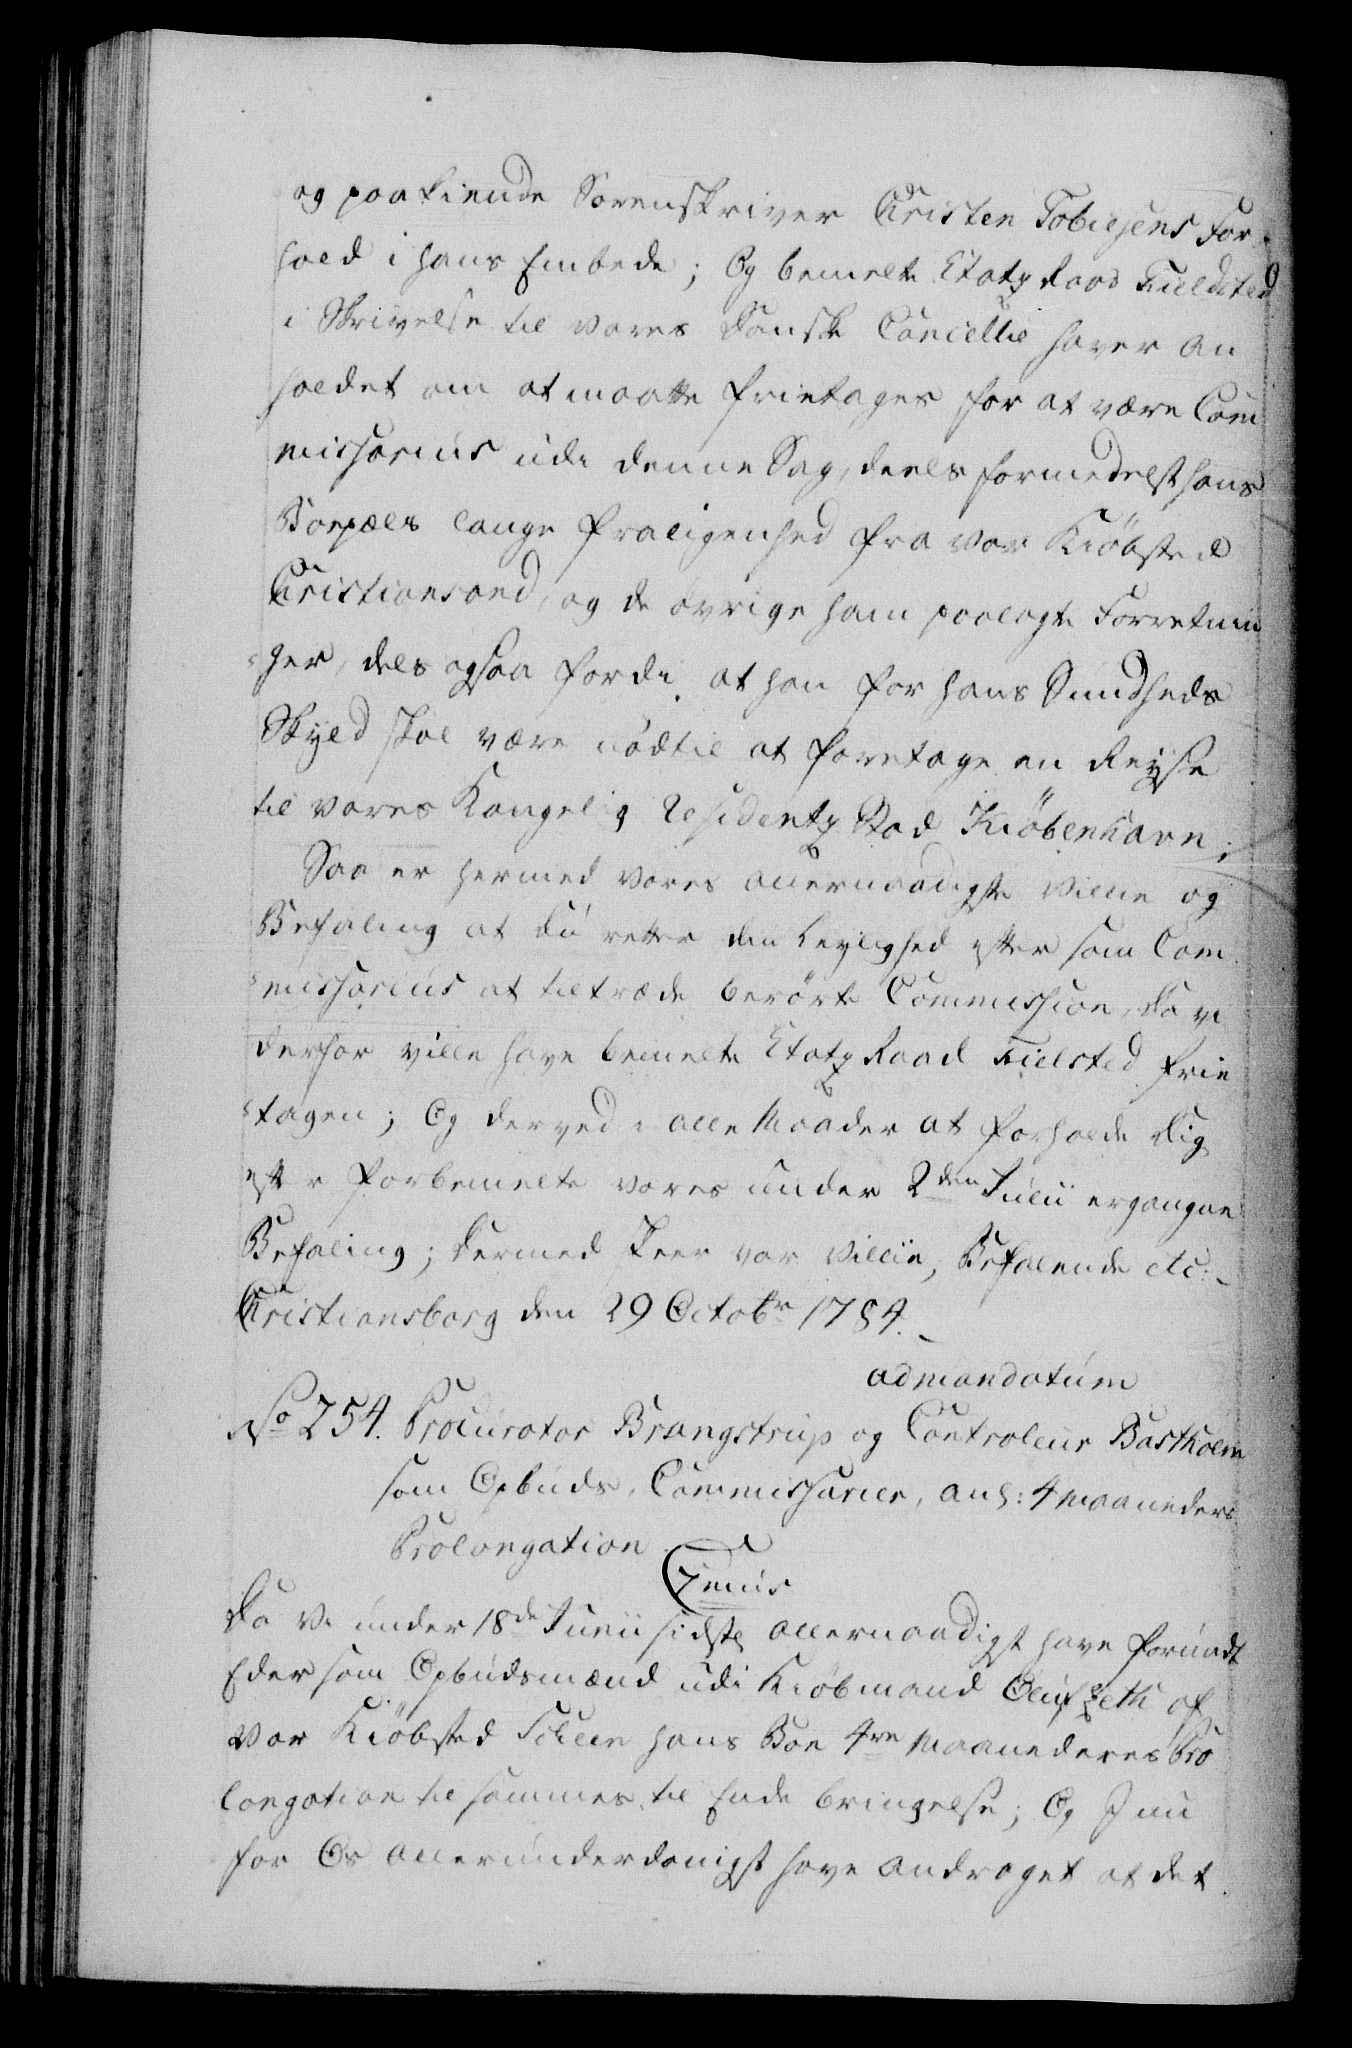 og paakiende Sorenskriver Christen Tobiesens For¬
hold i hans Embede; Og bemelte Etatz Raad Fieldsted
i Skrivelse til vores danske Cancellie haver an
holdet om at maatte frietages for at være Com
missarius udi denne Sag, deels formedelst hans
Boepæls lange fraliggenhed fra vor Kiöbsted
Christiansand, og de övrige ham paalagte Forretnin
ger, deels ogsaa fordi at han for hans Sundheds
Skyld skal være nödt til at foretage en Reyse
til vores Kongelig Residentz Stad Kiöbenhavn;
Saa er hermed vores allernaadigste Villie og
Befaling at du retter din Leylighed efter som Com
missarius at tiltræde berörte Commission, da vi
derfor ville have bemelte Etatz Raad Fielsted frie
tagen; Og derved i alle Maader at forholde dig
efter forbemelte vores under 2den Julii ergangne
Befaling; Dermed skeer vor Villie, Befalende etc:
Christiansborg den 29 Octobr 1784.
ad mandatum
No 254. Procurator Brangstrup og Controleur Bastholm
som Opbuds-Commissarier, anl: 4 Maaneders
Prolongation
Genus
Da Vi under 18de Junii sidste allernaadigst have forundt
Eder som Opbudsmænd udi Kiöbmand Oluf Zeth af
vor Kiöbsted Scheen hans Boe 4re Maaneders Pro
longation til sammes til Ende bringelse; Og I nu
for Os allerunderdanigst have andraget at det